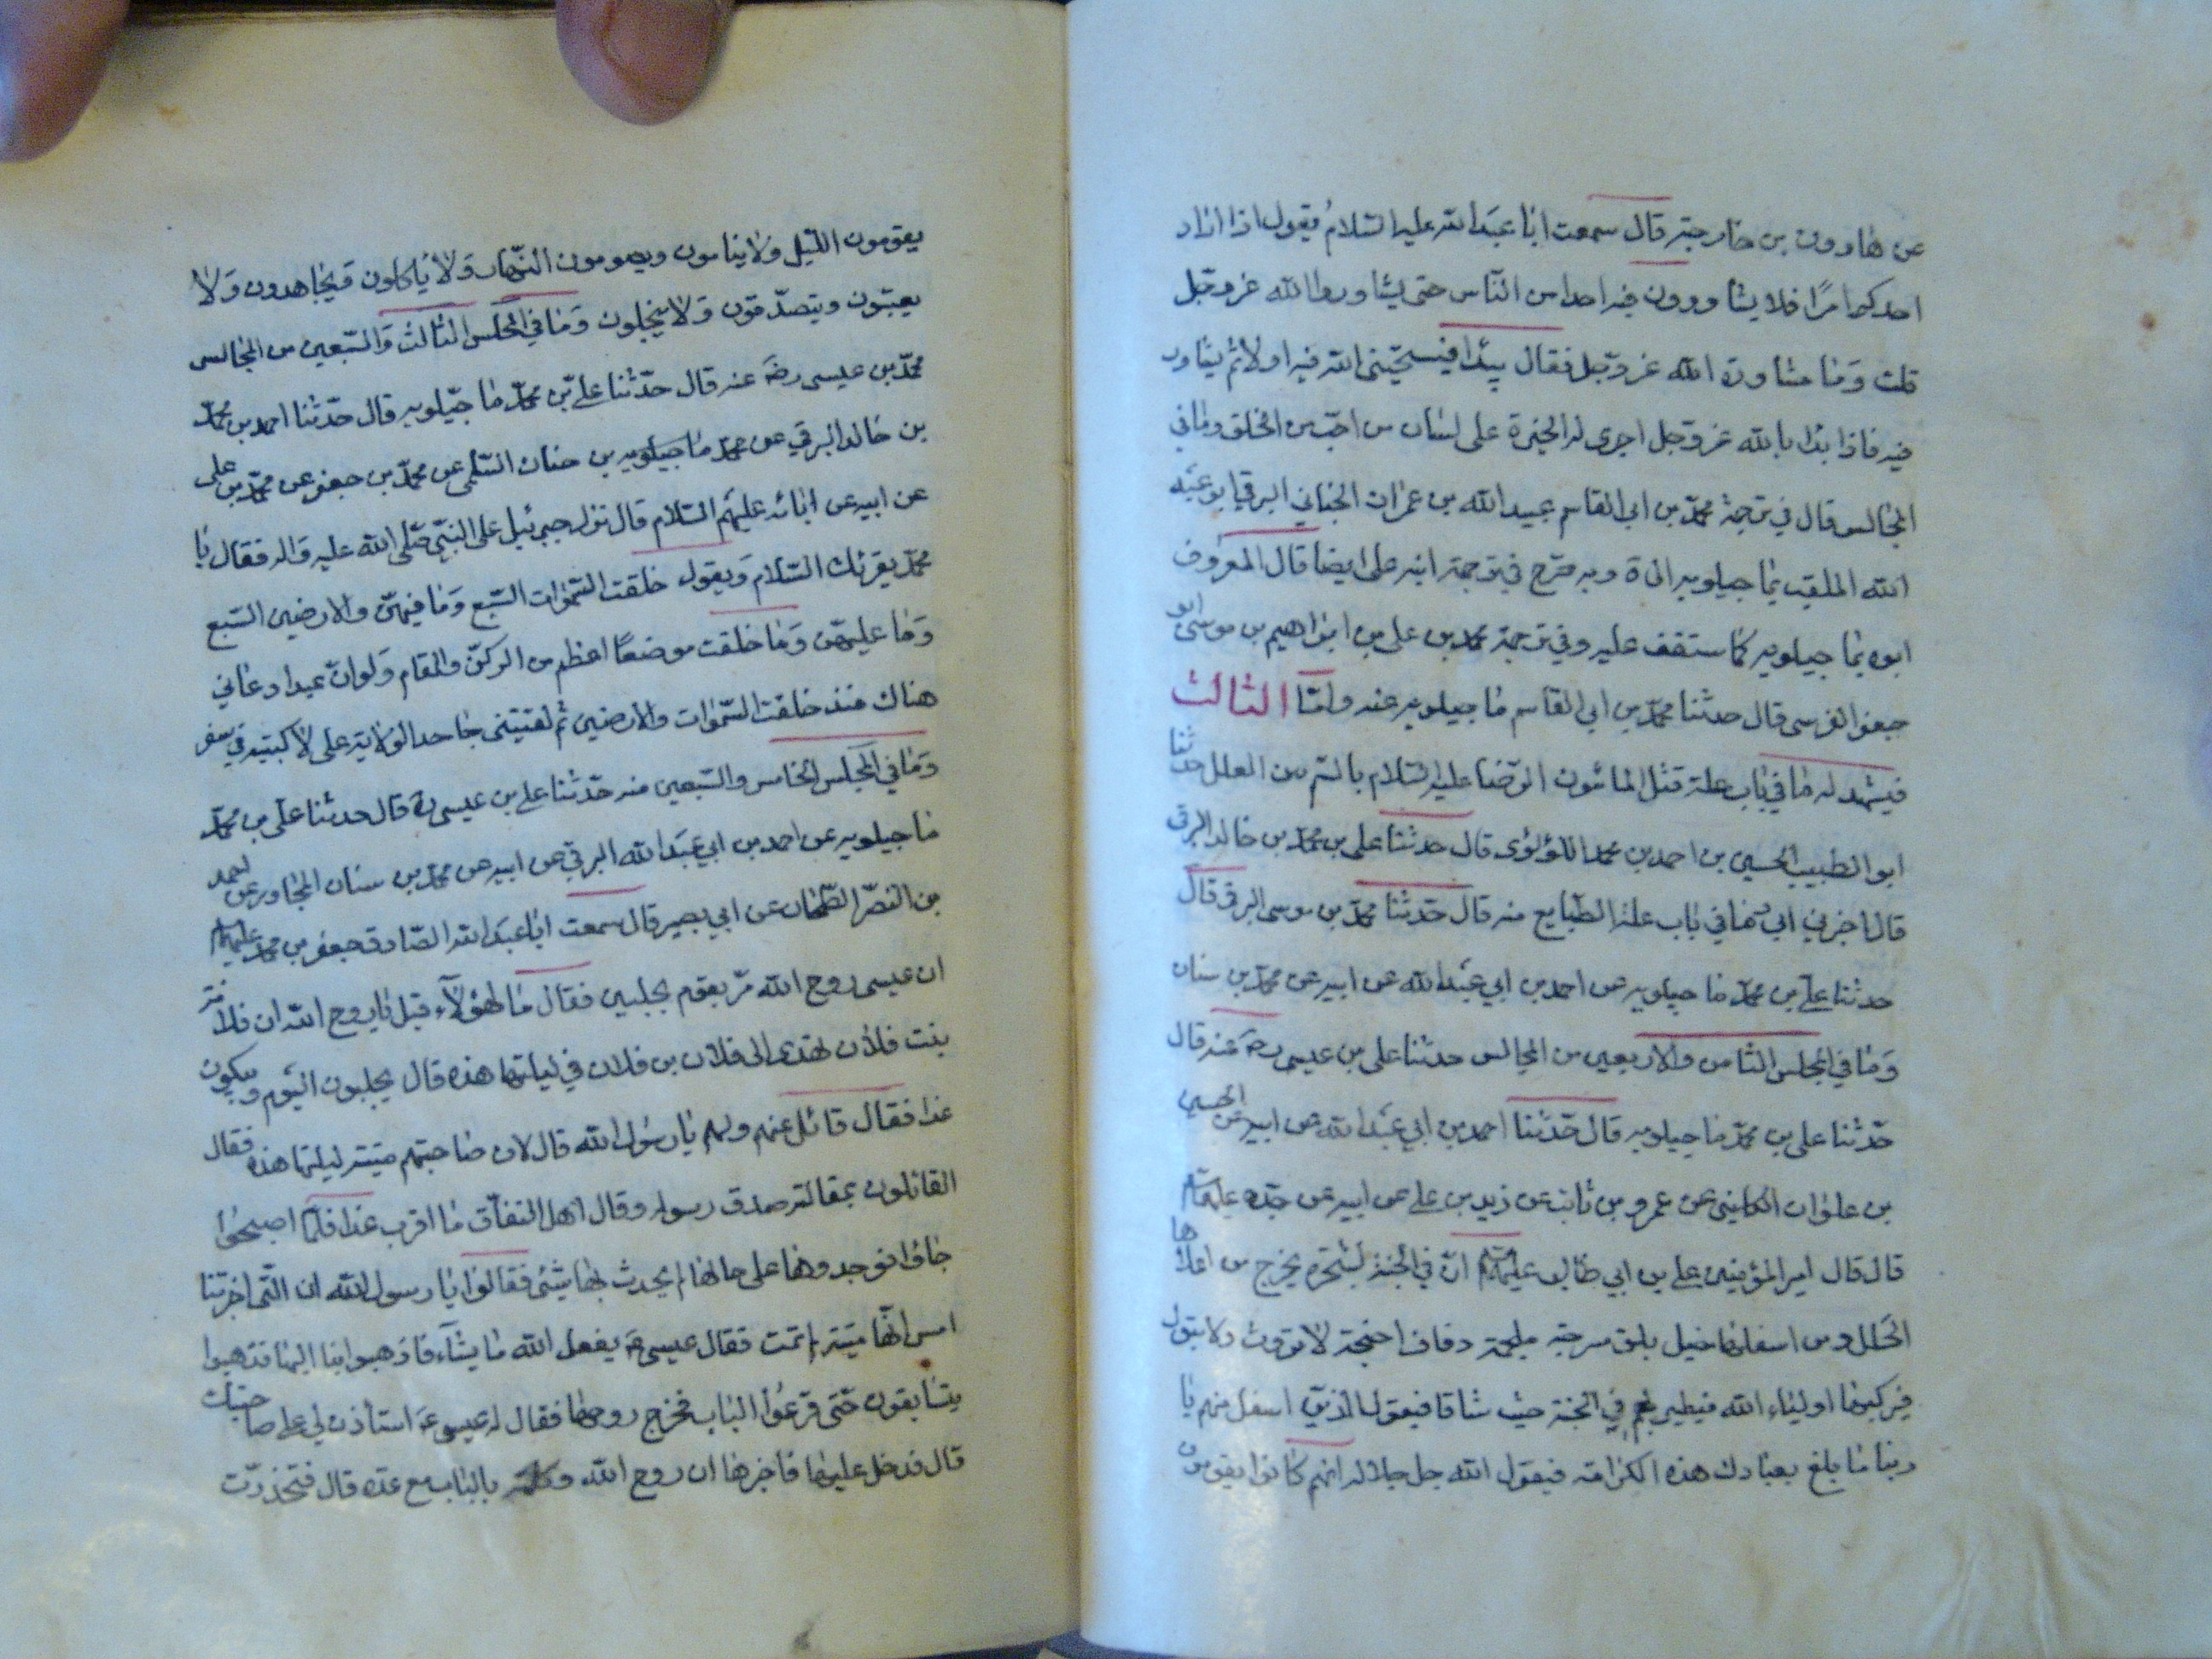 عن هارون بن خارجة قال سمعت ابا عبد الله عليه السلام يقول اذا اراد
احدكم امرًا فلا يشاورون فيه احدا من الناس حتى يشاوروا الله عز وجل
قلت وما مشاورة الله عز وجل فقال يبدا فيستخير الله فيه اولا ثم يشاور
فيه فاذا بدا بالله عز وجل اجرى له الخيرة على لسان من احب من الخلق وما في
المجالس قال في ترجمة محمد بن ابي القاسم عبيد الله بن عمران الجنابي البرقي ابو عبد
الله الملقب بما جيلويه الى ة وبه صرح في ترجمة ابنه على ايضا قال المعروف
ابوه بما جيلويه كما ستقف عليه وفي ترجمة محمد بن على بن ابراهيم بن موسى ابو
جعفر القرسى قال حدثنا محمد بن ابي القاسم ما جيلويه عنه واما الثالث
فيشهد له ما في باب علة قتل المامون الرضا عليه السلام بالسم من العلل حدثنا
ابو الطيب الحسين بن احمد بن محمد اللؤلؤى قال حدثنا على بن محمد بن خالد البرقى
قال اخبرني ابي وما في باب علة الطبايع منه قال حدثنا محمد بن موسى البرقى قال
حدثنا على بن محمد ما جيلويه عن احمد بن ابي عبد الله عن ابيه عن محمد بن سنان
وما في المجلس الثامن والاربعين من المجالس حدثنا على بن عيسى رضه عنه قال
حدثنا على بن محمد ما جيلويه قال حدثنا احمد بن ابي عبد الله عن ابيه عن الحسين
بن علوان الكلبى عن عمرو بن ثابت عن زيد بن على عن ابيه عن جده عليهم
قال قال امير المؤمنين على بن ابي طالب عليه ان في الجنة لشجرة يخرج من اعلاها
الحلل ومن اسفلها خيل بلق مسرجة ملجمة ذفاف اجنحة لا تروث ولا تبول
فيركبها اولياء الله فيطير بهم في الجنة حيث شاؤا فيقول الذين اسفل منهم يا
ربنا ما بلغ بعبادك هذه الكرامة فيقول الله جل جلاله انهم كانوا يقومون
يقومون الليل ولا ينامون ويصومون النهار ولا ياكلون ويجاهدون ولا
يعبنون ويتصدقون ولا يبخلون وما في المجلس الثالث والسبعين من المجالس
محمد بن عيسى رضه عنه قال حدثنا على بن محمد ما جيلويه قال حدثنا احمد بن محمد
بن خالد البرقي عن محمد ما جيلويه بن حنان السلمى عن محمد بن جعفر عن محمد بن على
عن ابيه عن ابائه عليهم السلام قال نزل جبرئيل على النبي صلى الله عليه واله فقال يا
محمد يقرئك السلام ويقول خلقت السموات السبع وما فيهن والارضين السبع
وما عليهن وما خلقت موضعا اعظم من الركن والمقام ولو ان عبدا دعاني
هناك منذ خلقت السموات والارضين ثم لقيتنى جاحدا لولاية على لاكبيته في سقر
وما في المجلس الخامس والسبعين منه حدثنا على بن عيسى ره قال حدثنا على بن محمد
ما جيلويه عن احمد بن ابي عبد الله البرقي عن ابيه عن محمد بن سنان المجاور عن احمد
بن النصر الطحان عن ابي بصير قال سمعت ابا عبد الله الصادق جعفر بن محمد عليهما
ان عيسى روح الله مر بقوم مجلبين فقال ما لهؤلاء قيل يا روح الله ان فلانة
بنت فلان تهدى الى فلان بن فلان في ليلتها هذه قال يجلبون اليوم ويبكون
غدا فقال قائل منهم ولم يا رسول الله قال لان صاحبتهم ميتة ليلتها هذه فقال
القائلون بمقالته صدق رسوله وقال اهل النفاق ما اقرب غدا فلما اصبحوا
جاؤا فوجدوها على حالها لم يحدث بها شئ فقالوا يا رسول الله ان التى اخبرتنا
امس انها ميتة لم تمت فقال عيسى ع يفعل الله ما يشاء فاذهبوا بنا اليها فذهبوا
يتسابقون حتى قرعوا الباب فخرج زوجها فقال له عيسى ع استاذن لي على صاحبتك
قال فدخل عليها فاخبرها ان روح الله وكلمته بالباب مع عدة قال فتخدرت